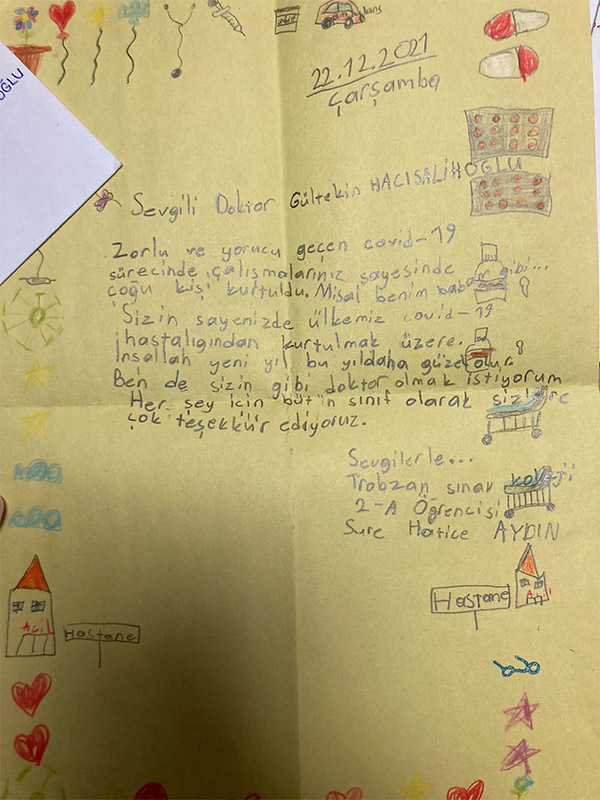 OĞLU
22.12.2021
Çarşamba
Sevgili Doktor Gültekin HACISALİHOĞLU
Zorlu ve yorucu geçen covid-19
sürecinde çalışmalarınız sayesinde
çoğu kişi kurtuldu. Misal benim babam gibi...
Sizin sayenizde ülkemiz covid-19
hastalığından kurtulmak üzere.
İnsallah yeni yıl bu yıldaha güzel olur.
Ben de sizin gibi doktor olmak istiyorum
Her şey için bütün sınıf olarak sizlere
çok teşekkür ediyoruz.
Sevgilerle...
Trabzan sınav koleji
2-A Öğrencisi
Sure Hatice AYDIN
Hastane
Acil
Hastane